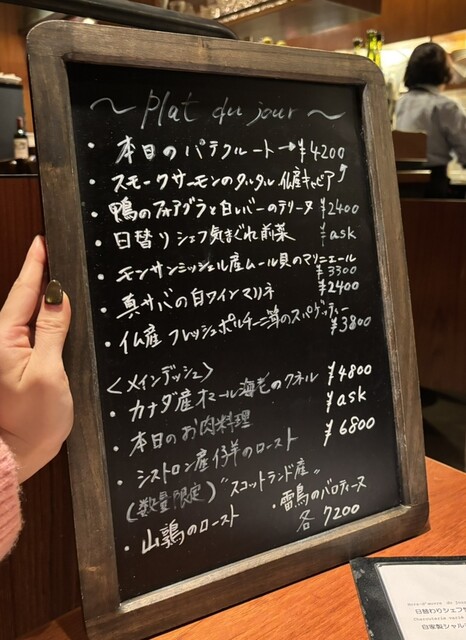 ～ Plat du jour ～
・本日のパテクルート→¥4200
・スモークサーモンのタルタル 仏産キャビア
・鴨のフォアグラと白レバーのテリーヌ ¥2400
・日替りシェフ気まぐれ前菜 ¥ask
・モンサンミッシェル産ムール貝のマリニエール ¥3300
・真サバの白ワインマリネ ¥2400
・仏産 フレッシュポルチーニ茸のスパゲッティー ¥3800
〈メインデッシュ〉
・カナダ産オマール海老のクネル ¥4800
・本日のお肉料理 ¥ask
・シストロン産仔羊のロースト ¥6800
(数量限定) "スコットランド産"
・山鶉のロースト ・雷鳥のバロティーヌ
各 7200
日替わりシェフ
自家製シャル